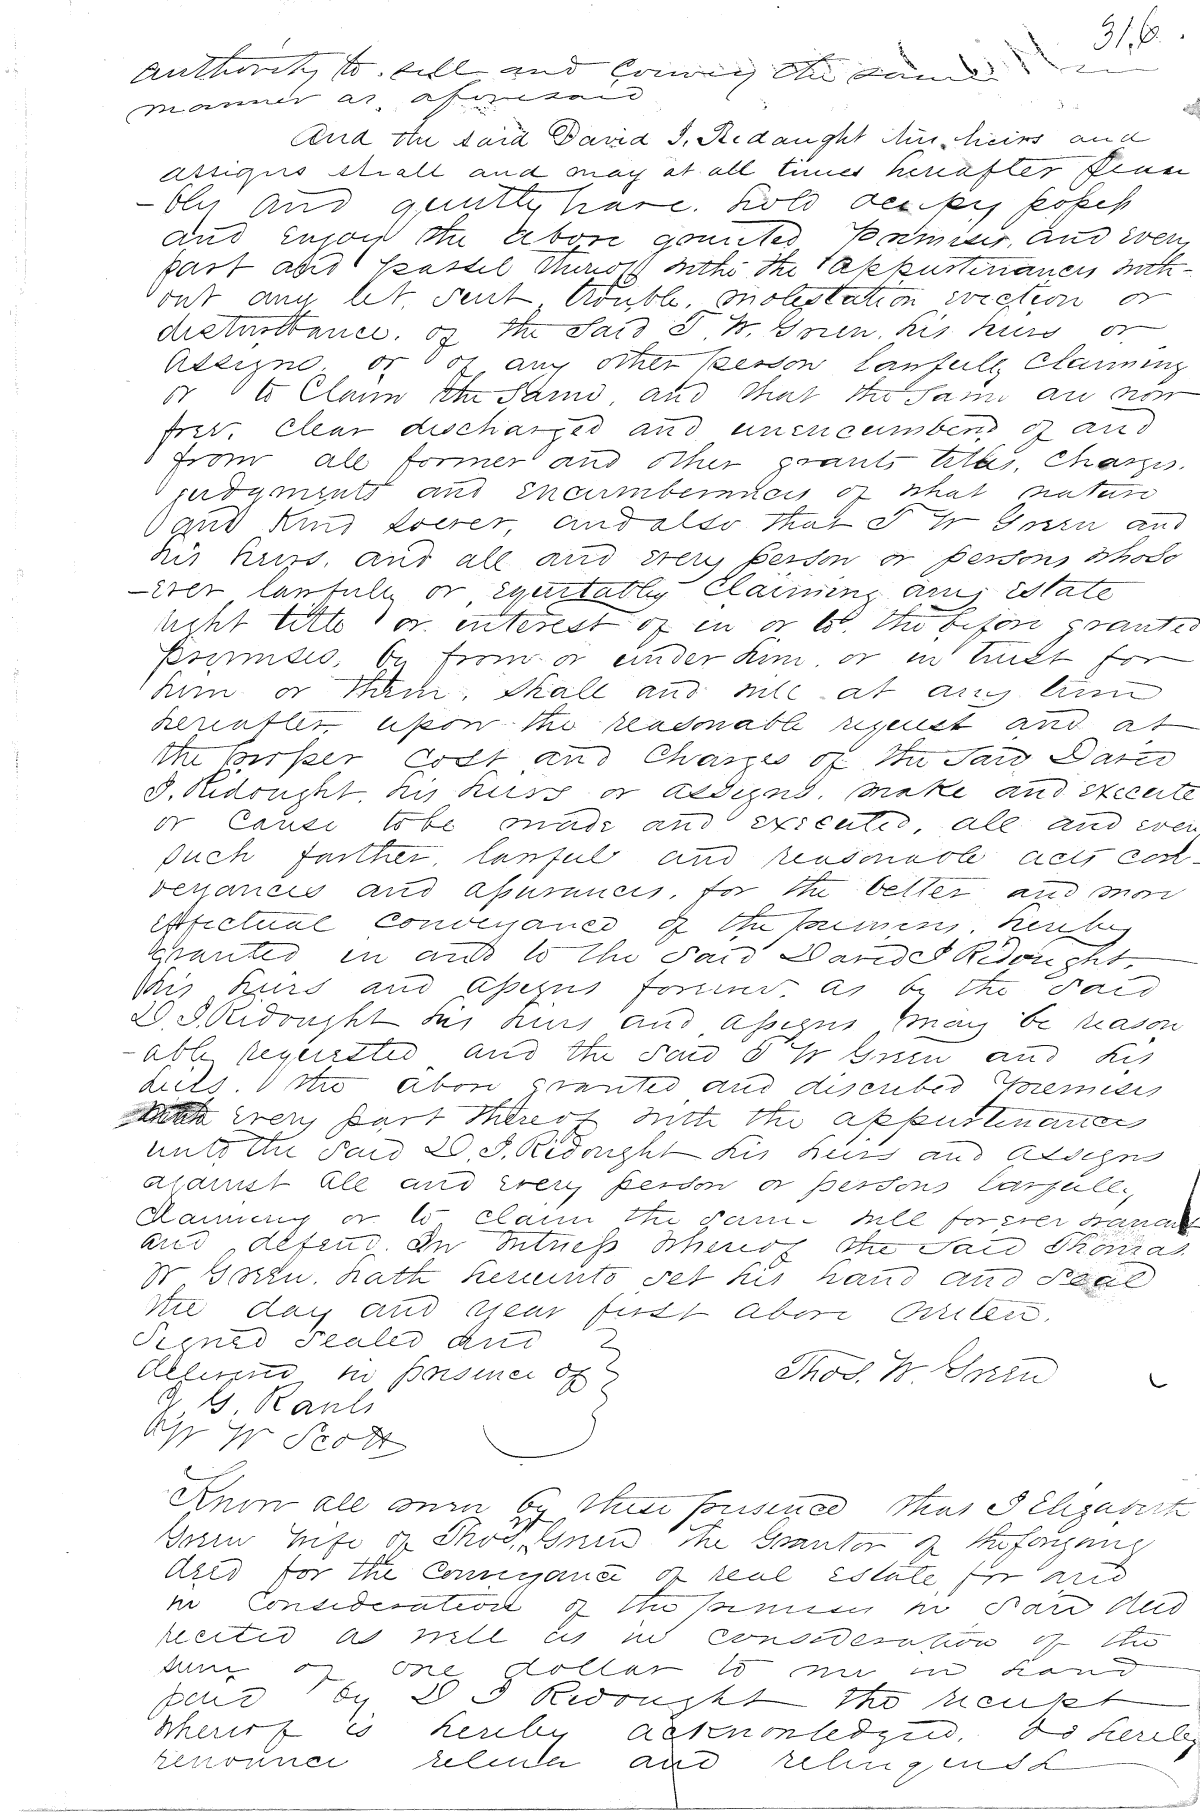 316.
authority to sell and convey the same in
manner as aforesaid
And the said David J. Redaught his heirs and
assigns shall and may at all times hereafter peaca
-bly and quietly have. hold occupy possess
and enjoy the above granted premises, and every
part and passel thereof with the appurtinances with-
out any let, suit, trouble, molestation eviction or
disturbance. of the said T. W. Green, his heirs or
Assigns or of any other person lawfully Claiming
or to Claim the Same, and that the Same are now
free, clear discharged and unencumbered of and
from all former and other grants titles, Charges,
judgments and encumberances of what nature
and Kind soever, and also that T W Green and
his heirs, and all and every person or persons whoso
-ever lawfully or equitably Claiming any Estate
right title or interest of in or to the before granted
premises, by from or under him, or in trust for
him or them, shall and will at any time
hereafter, upon the reasonable request and at
the proper cost and Charges of the Said David
J. Ridought, his heirs or assigns, make and execute
or cause tobe made and executed, all and every
such farther, lawful and reasonable acts con-
veyances and assurances, for the better and more
effectual conveyance of the premises, hereby
granted in and to the said David J Ridought,
his heirs and assigns forever, as by the said
D. J. Ridought his heirs and assigns may be reason
-ably requested and the said T W Green and his
heirs. the above granted and discribed premises
every part thereof with the appurtinances
unto the said D. J. Ridought his heirs and assigns
against all and every person or persons lawfully
Claiming or to claim the same will forever warrant
and defend. In Witness whereof the said Thomas
W Green. hath hereunto set his hand and seal
the day and year first above writen.
Signed sealed and
delivered in presence of
Thos. W. Green
J. G. Rauls
W Scott
Know all men by these presence that I Elizabeth
Green wife of Thos. W Green the Grantor of the forgoing
deed for the conveyance of real Estate, for and
in consideration of the premises in said deed
recited as well as in consideration of the
sum of one dollar to me in hand
paid by D J Ridought the receipt
whereof is hereby acknowledged, do hereby
renounce release and relinquish